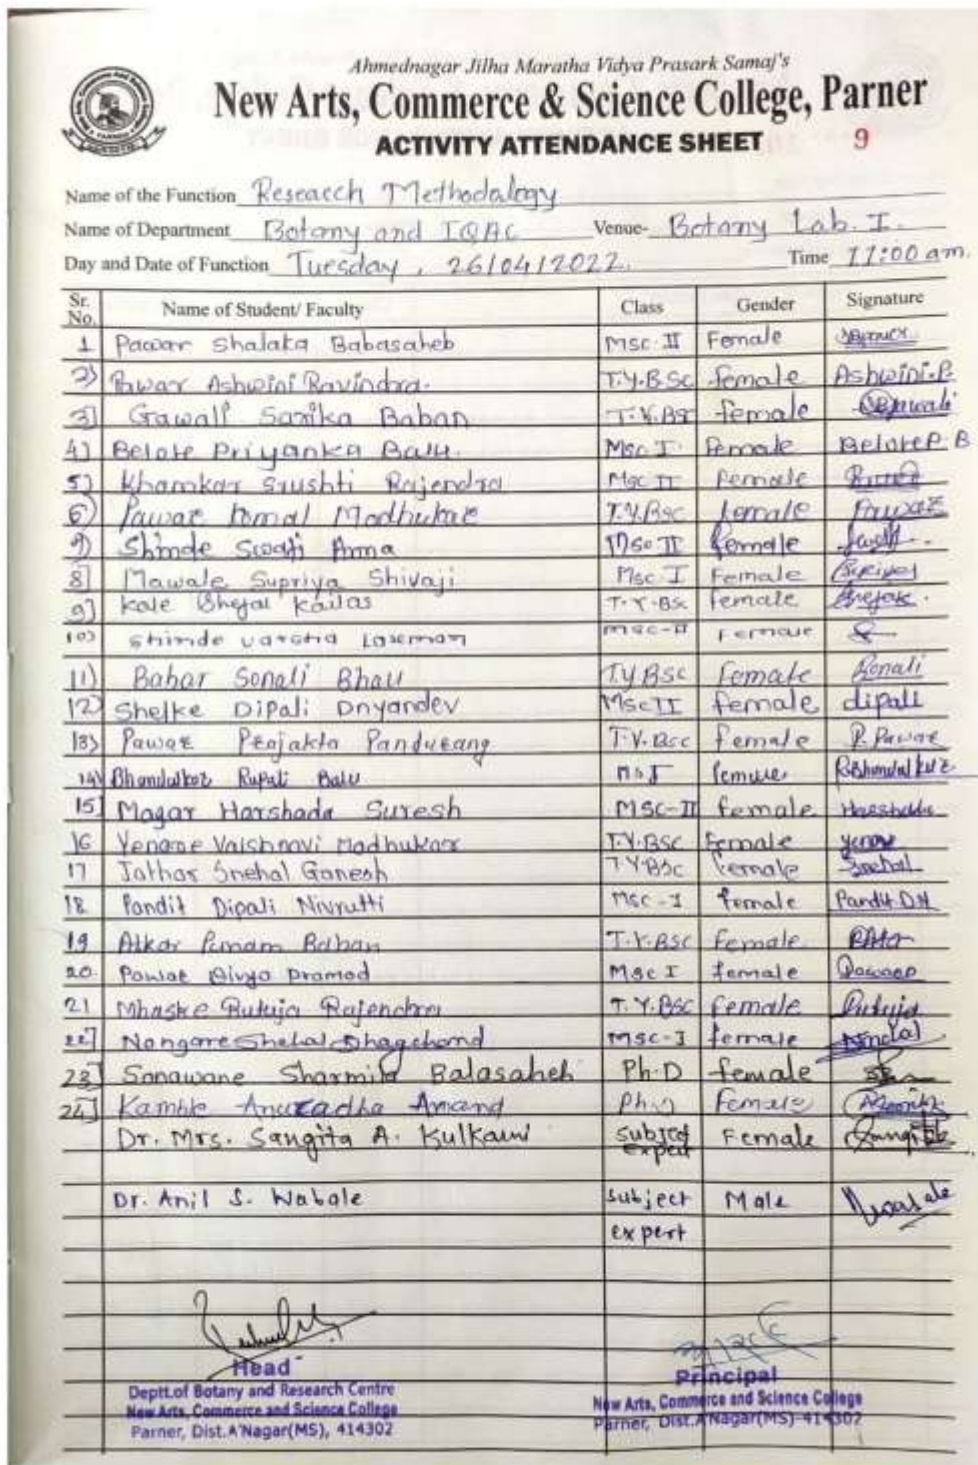 Ahmednagar Jilha Maratha Vidya Prasark Samaj's
New Arts, Commerce & Science College, Parner
ACTIVITY ATTENDANCE SHEET 9
Name of the Function Research Methodology
Name of Department Botany and IQAC Venue- Botany Lab. I.
Day and Date of Function Tuesday, 26/04/2022. Time 11:00 am.
Sr. No. Name of Student/ Faculty Class Gender Signature
1 Pawar Shalaka Babasaheb MSC-II Female
2) Pawar Ashwini Ravindra. T.Y.B.Sc female Ashwini.P.
3] Gawali Sarika Baban T.Y.BSc female
4] Belote Priyanka Balu. Msc I. Female Belote P. B
5] Khamkar Srushti Rajendra Msc II Female
6) Pawar Komal Madhukar T.Y.Bsc female Pawar
7) Shinde Swati Anna Msc II female
8] Mawale Supriya Shivaji Msc I Female Supriya
9] Kale Shejal Kailas T.Y.BSc female Shejal.
10) Shinde varsha Laxman msc-II Female
11) Babar Sonali Bhau T.Y.BSc female Sonali
12) Shelke Dipali Dnyandev MscII female dipali
13) Pawar Prajakta Pandurang T.Y.Bsc female P. Pawar
14) Bhandalkar Rupali Balu female R.Bhandalkar
15] Magar Harshada Suresh MSC-II female Harshada
16 Yenare Vaishnavi Madhukar T.Y.BSC female Yenare
17 Jathar Snehal Ganesh T.Y.BSc Female Snehal
18. Pandit Dipali Nivrutti MSC-I female Pandit D.N
19 Atkar Punam Baban T.Y.BSC female
20. Pawar Divya Pramod Msc I female
21 Mhaske Rutuja Rajendra T.Y.BSC female Rutuja
22] Nangare Snehal Bhagchand MSC-I female
23] Sonawane Sharmila Balasaheb Ph.D female
24] Kamble Anuradha Anand Ph.D Female
Dr. Mrs. Sangita A. Kulkarni Subject expert Female Sangita
Dr. Anil S. Wabale Subject Male
expert
Head
Deptt.of Botany and Research Centre
New Arts, Commerce and Science College
Parner, Dist.A'Nagar(MS), 414302
Principal
New Arts, Commerce and Science College
Parner, Dist.A'Nagar(MS)-414302